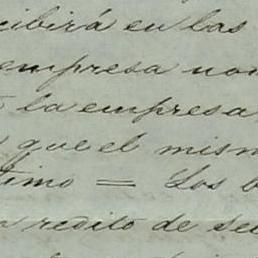 cibirá en las
empresa nom
la empresa
que el mism
timo = Los b
redito de se